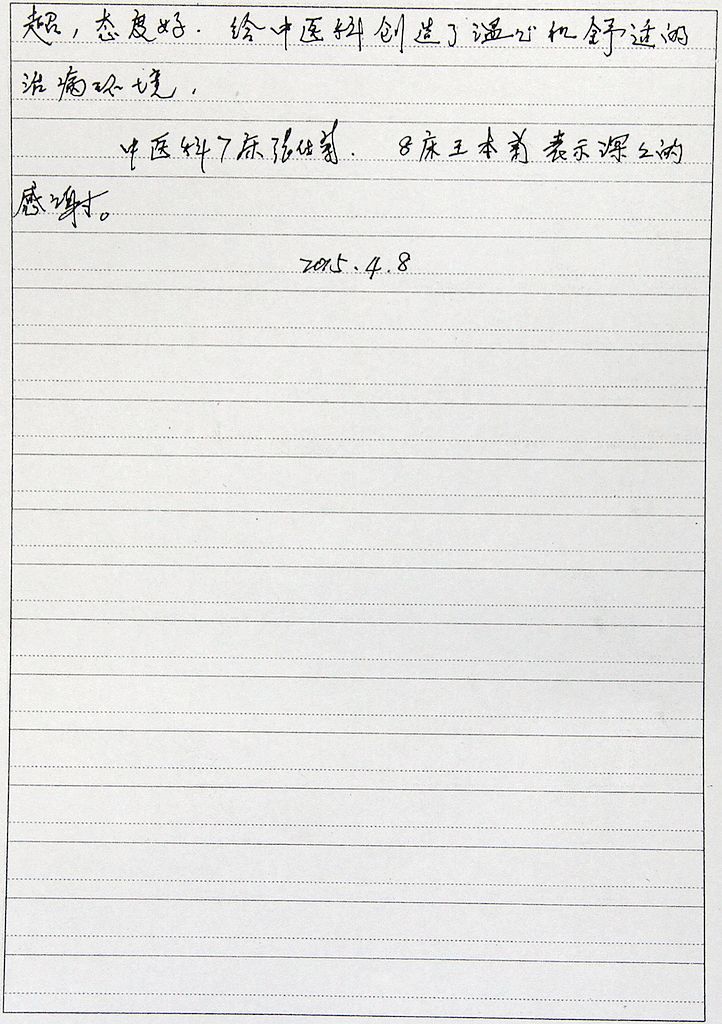 超，态度好．给中医科创造了温心和舒适的
治病环境，
中医科7床张仕菊．8床王本菊表示深々的
感谢。
2015.4.8